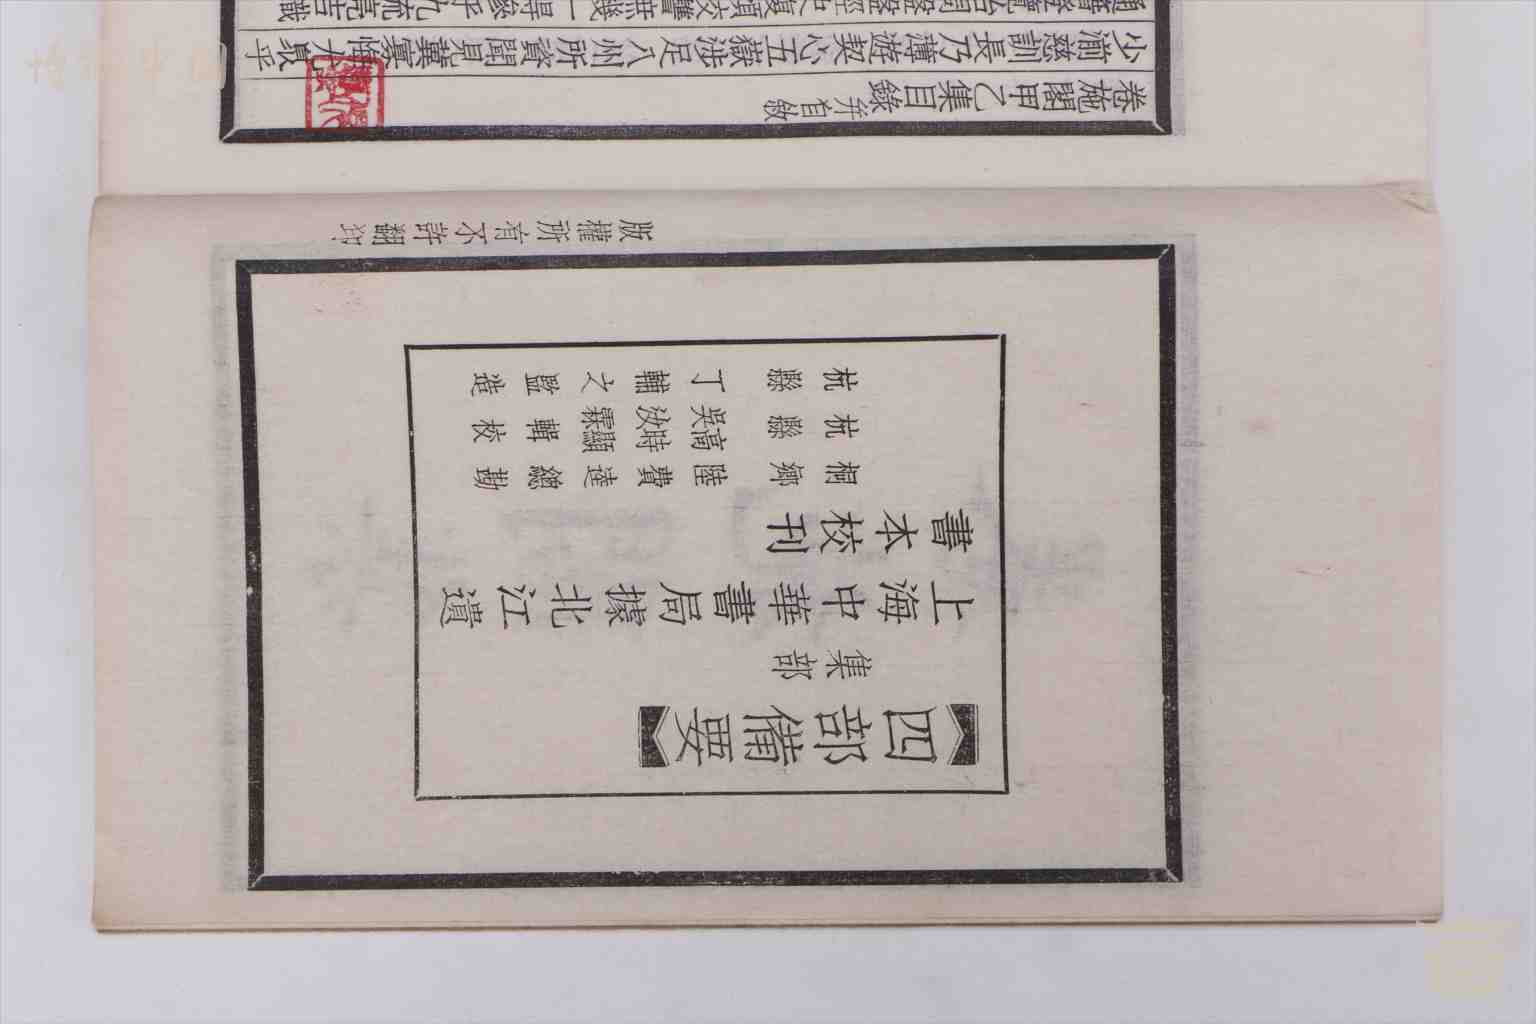 四部備要
集部
上海中華書局據北江遺
書本校刊
桐鄉 陸費逵 總勘
杭縣 高時顯 輯校
杭縣 吳汝霖 輯校
杭縣 丁輔之 監造
版權所有不許翻印
卷施閣甲乙集目錄 并自敘
慈訓長乃薄遊契心五嶽涉足八州所資聞見冀寡悔尤